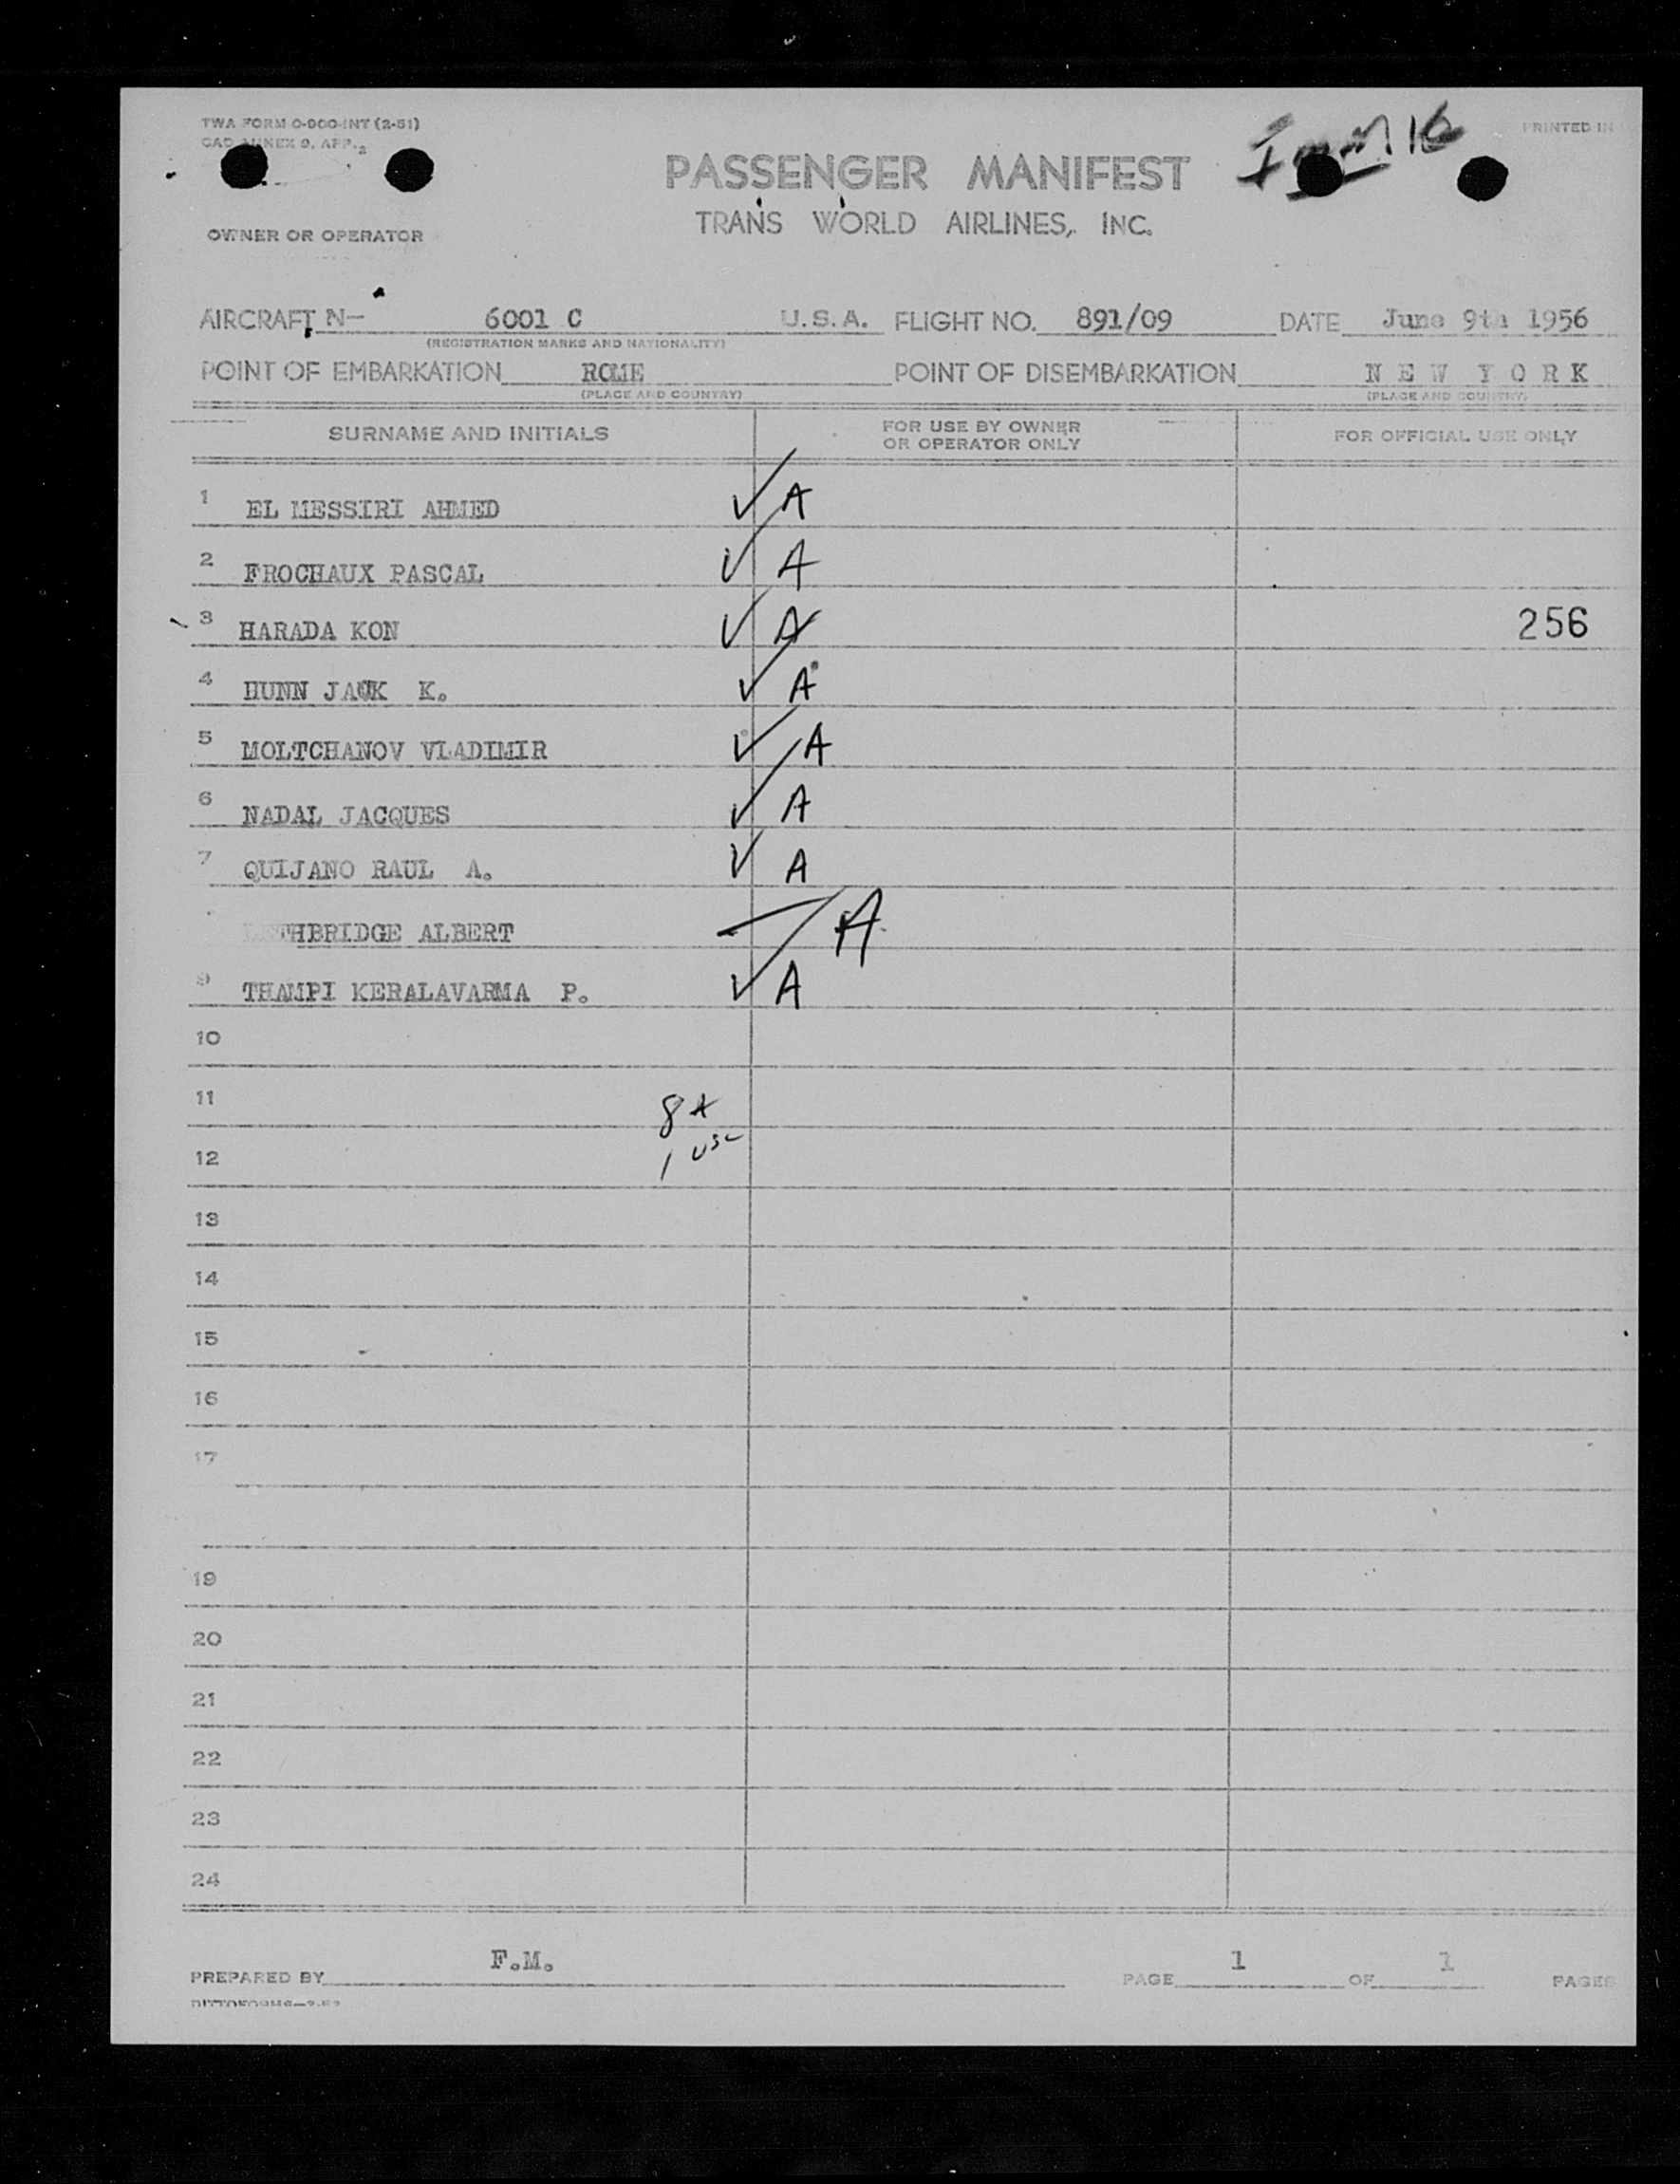 TWA FORM O-900-INT (2-51)
PRINTED IN
PASSENGER MANIFEST
TRANS WORLD AIRLINES, INC.
OWNER OR OPERATOR
AIRCRAFT N- 6001 C U.S.A. FLIGHT NO. 891/09 DATE June 9th 1956
(REGISTRATION MARKS AND NATIONALITY)
POINT OF EMBARKATION ROME POINT OF DISEMBARKATION N E W Y O R K
(PLACE AND COUNTRY) (PLACE AND COUNTRY)
SURNAME AND INITIALS FOR USE BY OWNER OR OPERATOR ONLY FOR OFFICIAL USE ONLY
1 EL MESSIRI AHMED ✓ A
2 FROCHAUX PASCAL ✓ A
3 HARADA KON ✓ A 256
4 HUNN JACK K. ✓ A
5 MOLTCHANOV VLADIMIR ✓ A
6 NADAL JACQUES ✓ A
7 QUIJANO RAUL A. ✓ A
HBRIDGE ALBERT A
9 THAMPI KERALAVARMA P. ✓ A
10
11 8 A
12 1 USC
13
14
15
16
17
19
20
21
22
23
24
PREPARED BY F.M. PAGE 1 OF 1 PAGES